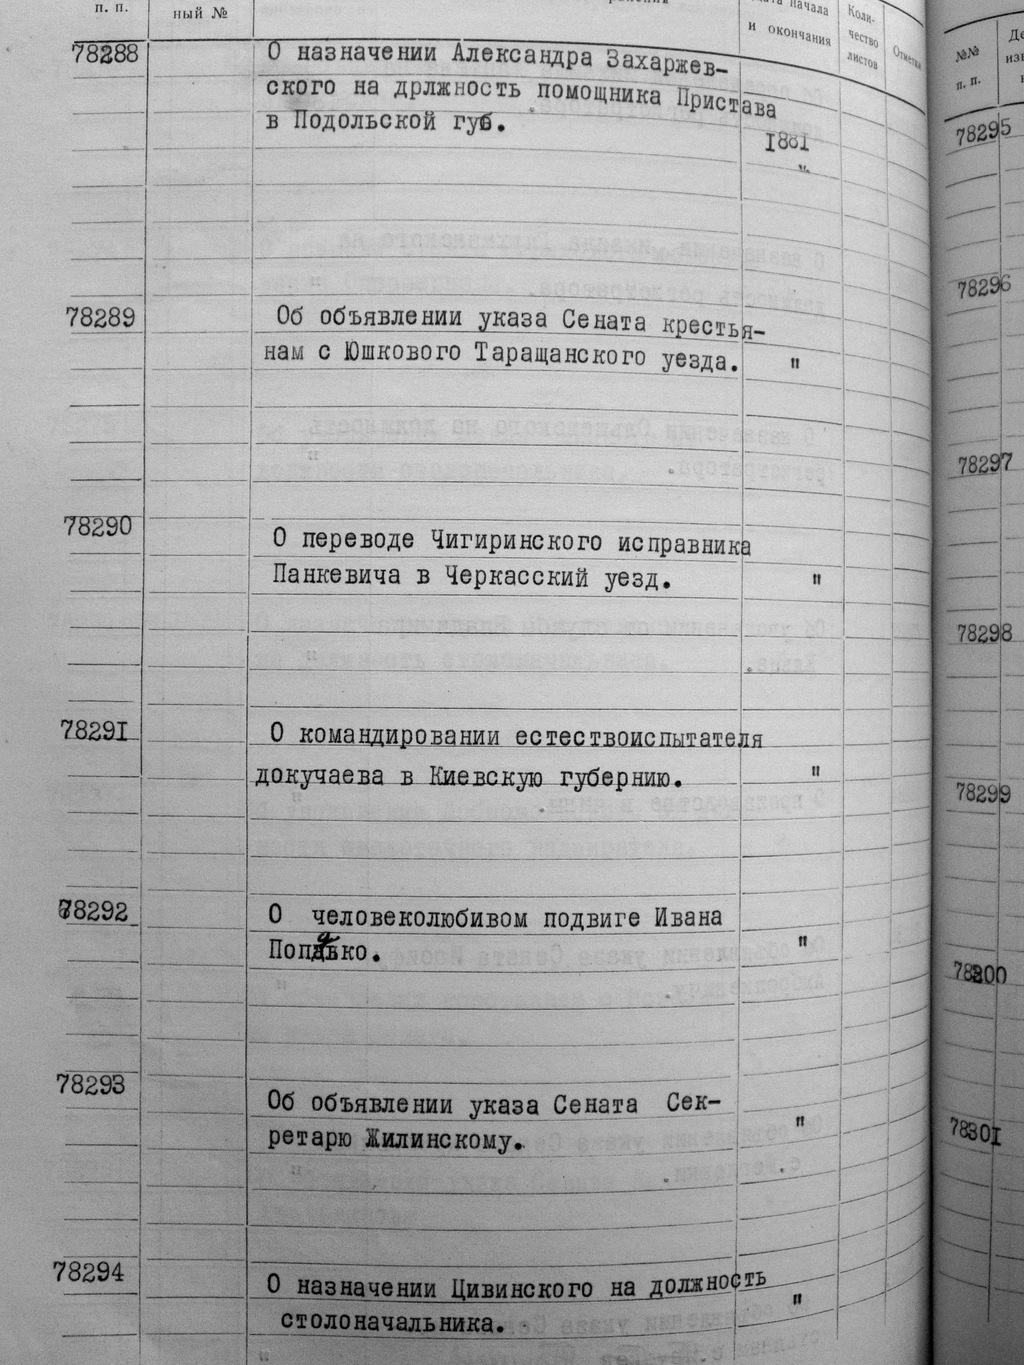 п. п.
ный №
дата начала
и окончания
Коли-
чество
листов
Отметки
78288
О назначении Александра Захаржев-
ского на дрлжность помощника Пристава
в Подольской губ.
I88I
"
78289
Об объявлении указа Сената крестья-
нам с Юшкового Таращанского уезда. "
78290
О переводе Чигиринского исправника
Панкевича в Черкасский уезд. "
7829I
О командировании естествоиспытателя
докучаева в Киевскую губернию. "
78292
О человеколюбивом подвиге Ивана
"
78293
Об объявлении указа Сената Сек-
ретарю Жилинскому. "
78294
О назначении Цивинского на должность
столоначальника. "
№№
п. п.
78295
78296
78297
78298
78299
78300
7830I